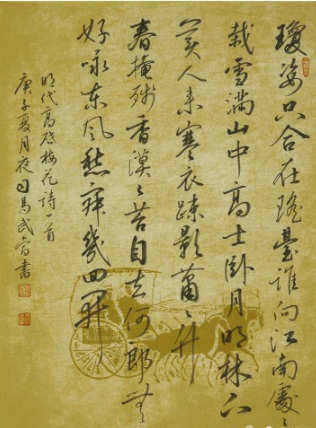 瓊姿只合在瑤臺誰向江南處々
栽雪滿山中高士臥月明林下
美人来寒衣疎影蕭々竹
春掩残香漠々苔自去何郎無
好咏东風愁寂幾回開
明代高啓梅花詩一首
庚子夏月夜司馬武當書